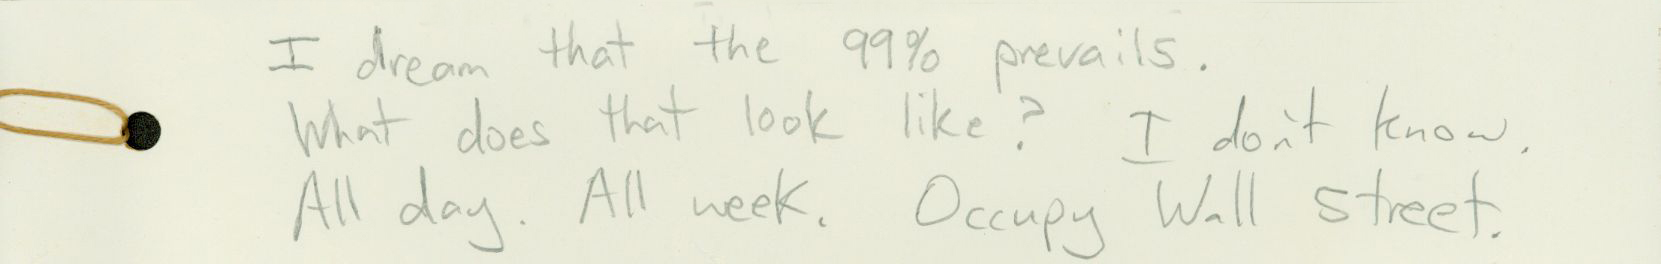 I dream that the 99% prevails.
What does that look like? I don't know.
All day. All week. Occupy Wall Street.